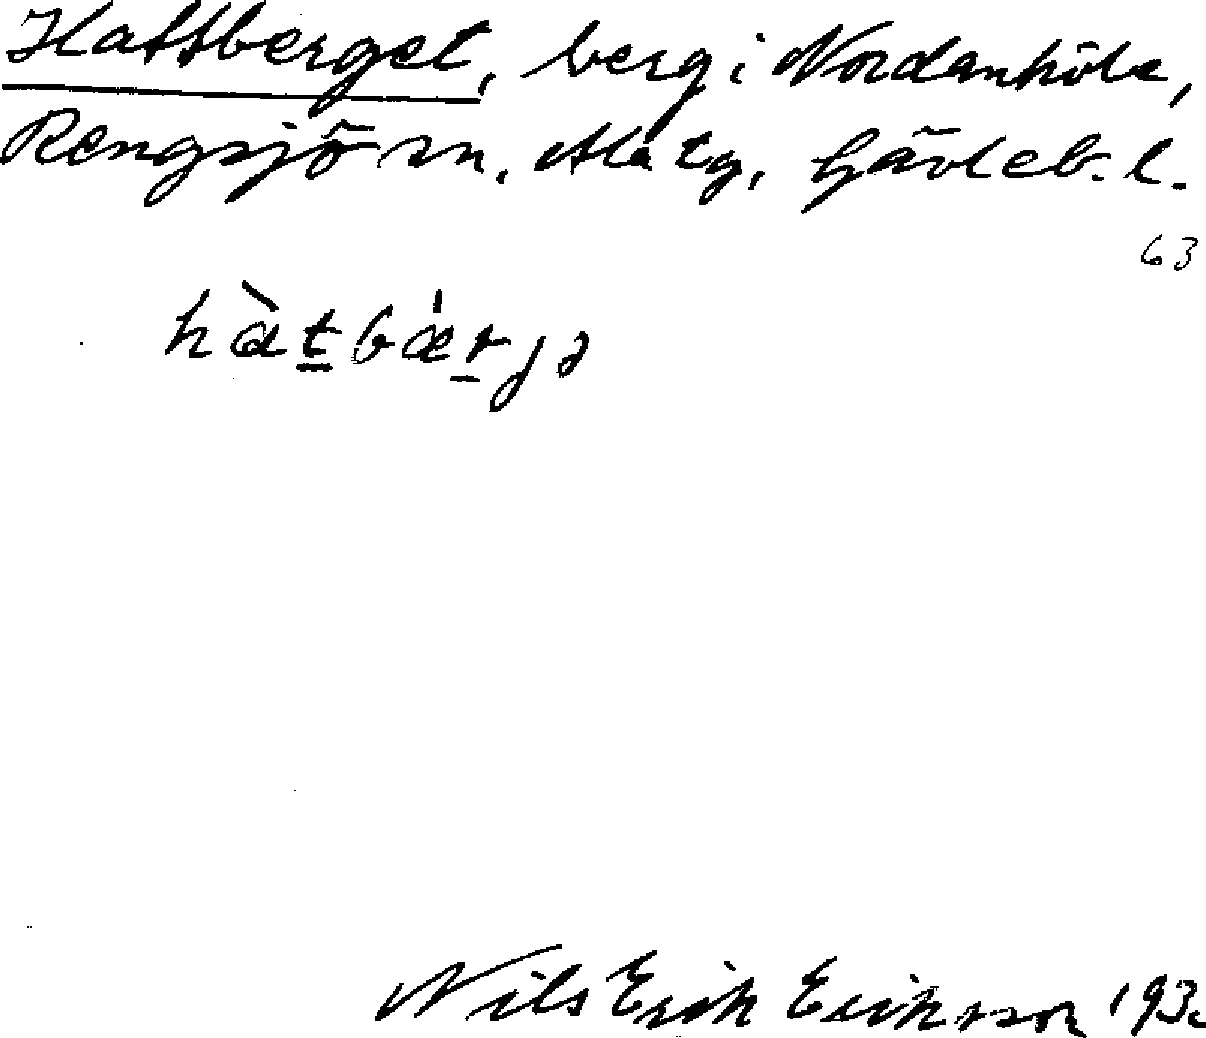 Hattberget, berg i Nordanhöle,
Rengsjö sn. Ala tg, Gävleb. l.
63
hàt̲bær̲jə
Nils Erik Eriksson 193